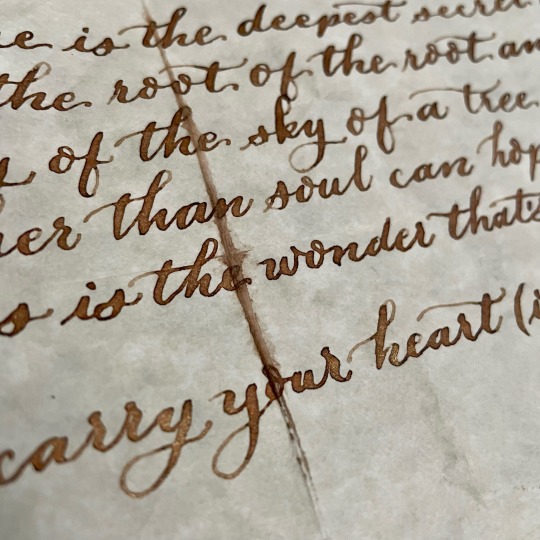 is the deepest secret
the root of the root
of the sky of a tree
than soul can
is the wonder that's
carry your heart (i